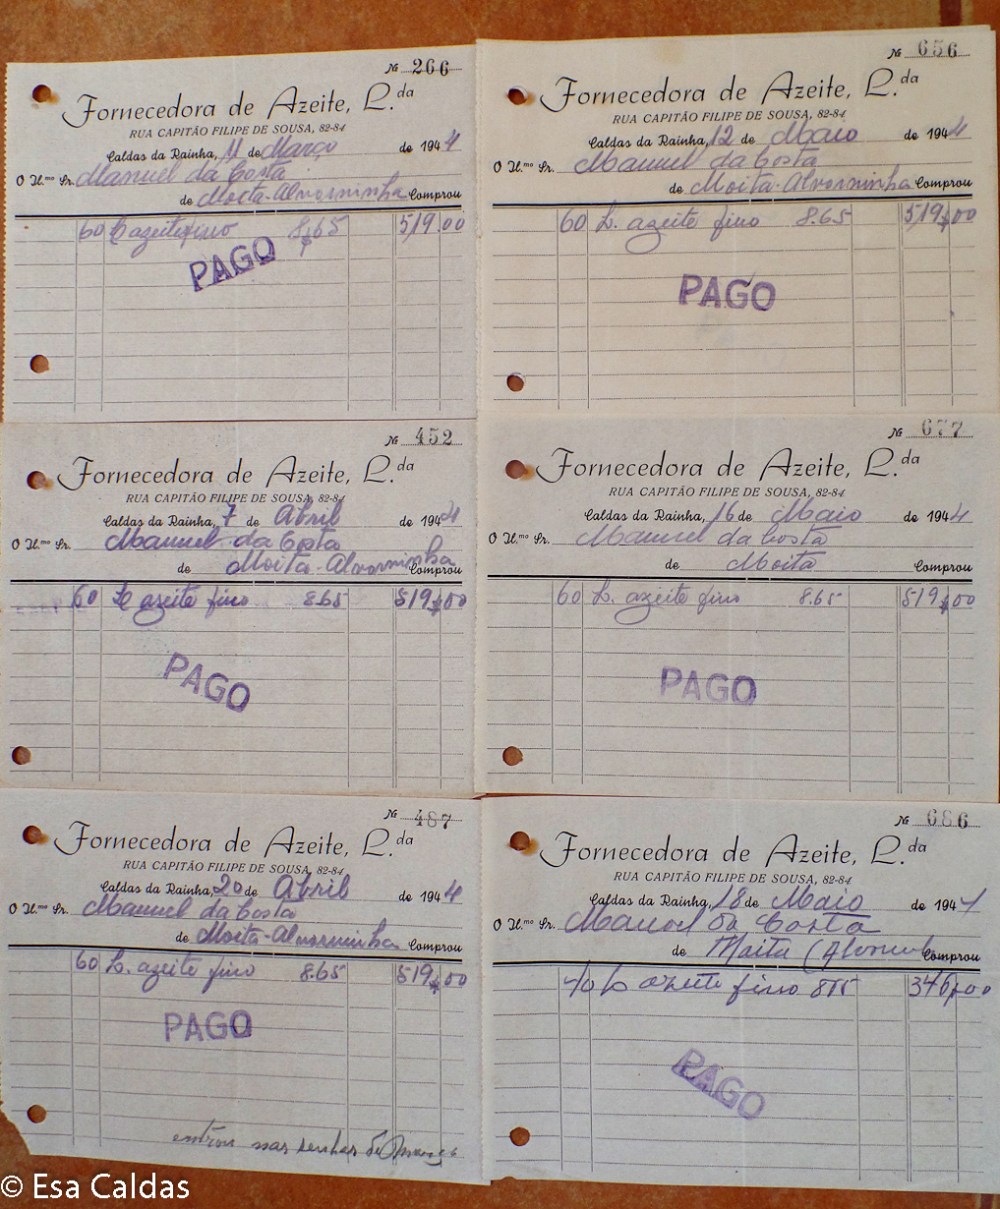 Nº 266
Fornecedora de Azeite, L.da
RUA CAPITÃO FILIPE DE SOUSA, 82-84
Caldas da Rainha, 11 de Março de 1944
O Il.mo Sr. Manuel da Costa
de Moita-Alvorninha Comprou
60 L azeite fino 8$65 519,00
PAGO
Nº 452
Fornecedora de Azeite, L.da
RUA CAPITÃO FILIPE DE SOUSA, 82-84
Caldas da Rainha, 7 de Abril de 1944
O Il.mo Sr. Manuel da Costa
de Moita-Alvorninha Comprou
60 L azeite fino 8.65 519$00
PAGO
Nº 487
Fornecedora de Azeite, L.da
RUA CAPITÃO FILIPE DE SOUSA, 82-84
Caldas da Rainha, 20 de Abril de 1944
O Il.mo Sr. Manuel da Costa
de Moita-Alvorninha Comprou
60 L. azeite fino 8.65 519$00
PAGO
entrou nas senhas de
Nº 656
Fornecedora de Azeite, L.da
RUA CAPITÃO FILIPE DE SOUSA, 82-84
Caldas da Rainha, 12 de Maio de 1944
O Il.mo Sr. Manuel da Costa
de Moita-Alvorninha Comprou
60 L. azeite fino 8.65 519$00
PAGO
Nº 677
Fornecedora de Azeite, L.da
RUA CAPITÃO FILIPE DE SOUSA, 82-84
Caldas da Rainha, 16 de Maio de 1944
O Il.mo Sr. Manuel da Costa
de Moita Comprou
60 L. azeite fino 8.65 519$00
PAGO
Nº 686
Fornecedora de Azeite, L.da
RUA CAPITÃO FILIPE DE SOUSA, 82-84
Caldas da Rainha, 18 de Maio de 1944
O Il.mo Sr. Manoel da Costa
de Moita Comprou
40 L azeite fino 346$00
PAGO
© Esa Caldas